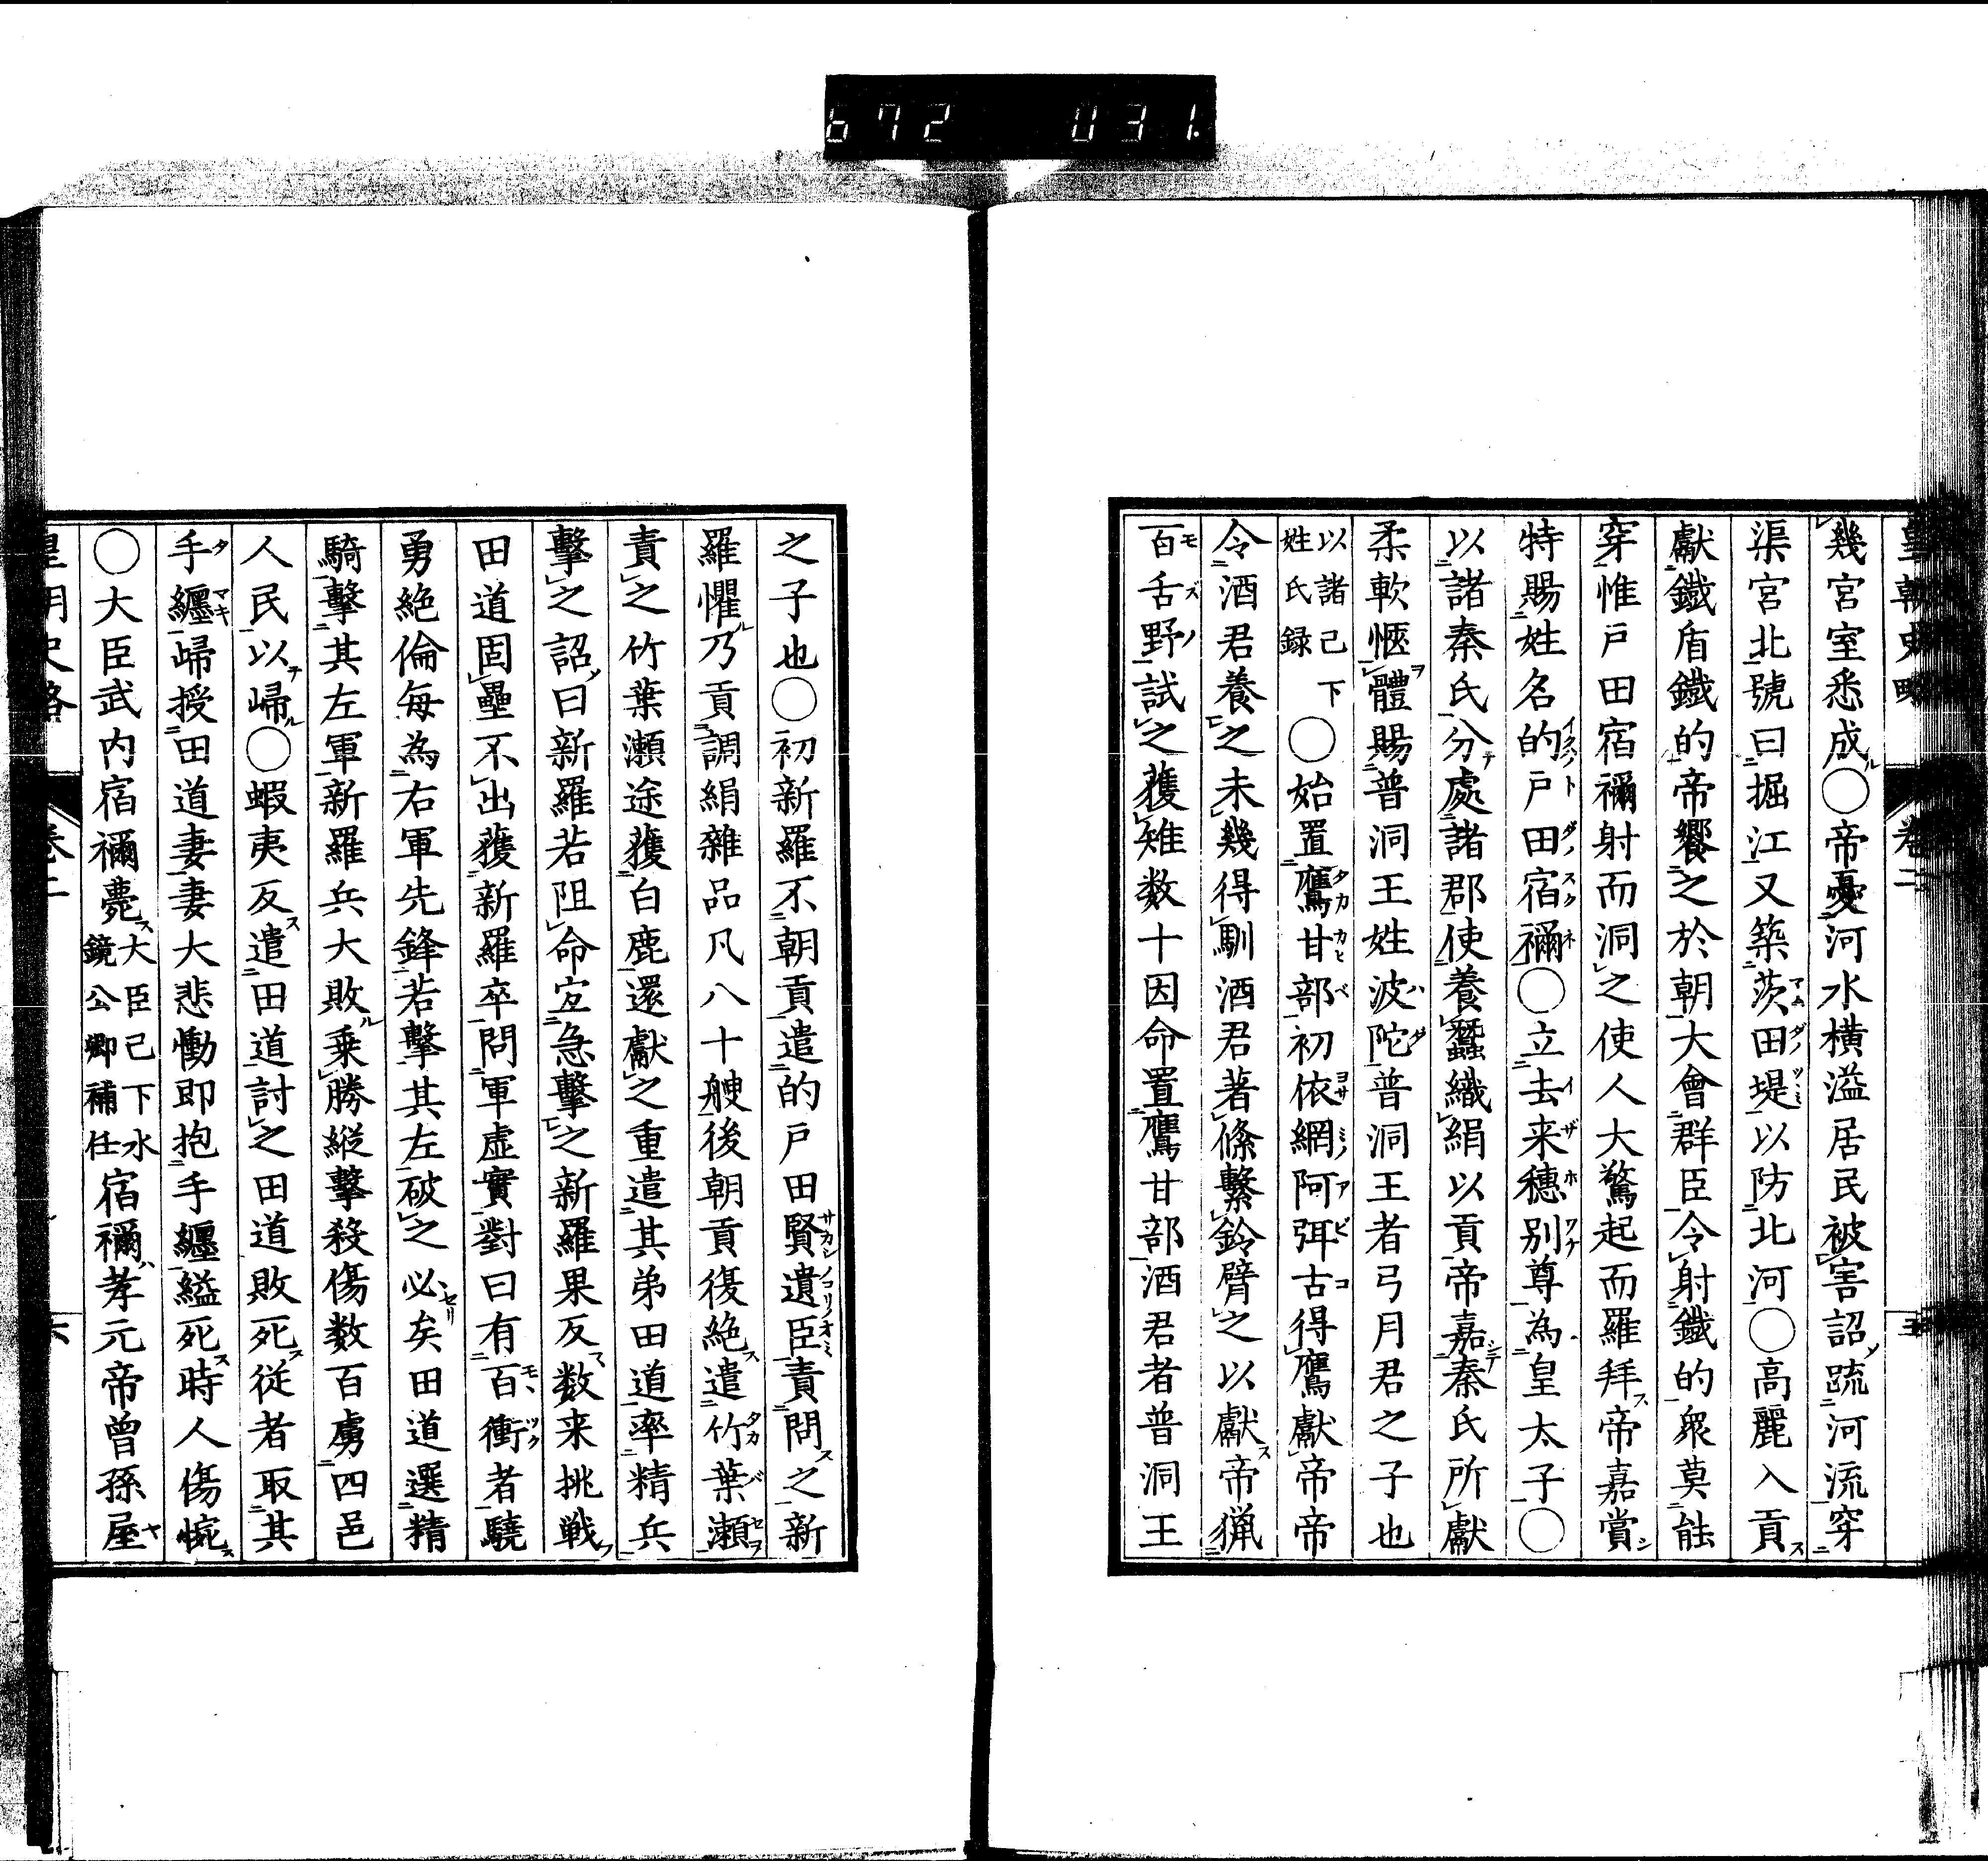 672 031.
皇朝史略 卷二
幾宮室悉成○帝憂河水橫溢居民被害詔疏河流穿
渠宮北號曰掘江又築茨田堤以防北河○高麗入貢
獻鐵盾鐵的帝饗之於朝大會群臣令射鐵的衆莫能
穿惟戸田宿禰射而洞之使人大驚起而羅拜帝嘉賞
特賜姓名的戸田宿禰○立去来穗别尊為皇太子○
以諸秦氏分處諸郡使養蠶織絹以貢帝嘉秦氏所獻
柔軟愜體賜普洞王姓波陀普洞王者弓月君之子也
以諸己下姓氏録○始置鷹甘部初依網阿弭古得鷹獻帝帝
令酒君養之未幾得馴酒君著條繫鈴臂之以獻帝猟
百舌野試之獲雉数十因命置鷹甘部酒君者普洞王
之子也○初新羅不朝貢遣的戸田賢遺臣責問之新
羅懼乃貢調絹雜品凡八十艘後朝貢復絶遣竹葉瀬
責之竹葉瀬途獲白鹿還獻之重遣其弟田道率精兵
擊之詔曰新羅若阻命宜急擊之新羅果反数来挑戦
田道固壘不出獲新羅卒問軍虚實對曰有百衝者驍
勇絶倫毎為右軍先鋒若擊其左破之必矣田道選精
騎擊其左軍新羅兵大敗乗勝縱擊殺傷数百虜四邑
人民以歸○蝦夷反遣田道討之田道敗死従者取其
手纏歸授田道妻妻大悲慟即抱手纏縊死時人傷惋
○大臣武内宿禰薨大臣己下水鏡公卿補任宿禰孝元帝曾孫屋
皇朝史略 卷二 六